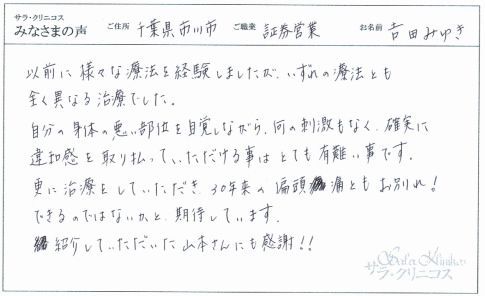 サラ・クリニコス
みなさまの声 ご住所 千葉県市川市 ご職業 証券営業 お名前 吉田みゆき
以前に様々な療法を経験しましたが、いずれの療法とも
全く異なる治療でした。
自分の身体の悪い部位を自覚しながら、何の刺激もなく、確実に
違和感を取り払っていただける事はとても有難い事です。
更に治療をしていただき、30年来の偏頭痛ともお別れ!
できるのではないかと、期待しています。
紹介していただいた山本さんにも感謝!!
Sala Klinikos
サラ・クリニコス